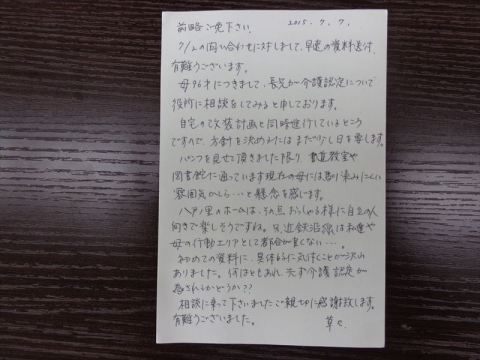 前略ご免下さい。 2015.7.7.
7/2の問い合わせに対しまして、早速の資料送付、
有難うございます。
母96才につきまして、長兄が介護認定について
役所に相談をしてみると申しております。
自宅の改装計画と同時進行しているところ
ですので、方針を決めるにはまだ少し日を要します。
パンフを見せて頂きました限り、書道教室や
図書館に通っています現在の母には馴染みにくい
雰囲気かしら…と懸念を感じます。
八戸ノ里のホームは、その点おっしゃる様に自立の人
向きで楽しそうですね。只、近鉄沿線は私達や
母の行動エリアとして都合が良くない…。
初めての資料に、具体的に気付くことが沢山
ありました。何はともあれ、先ず介護認定が
為されるかどうか??
相談に乗って下さいましたご親切に感謝致します。
有難うございました。 草々